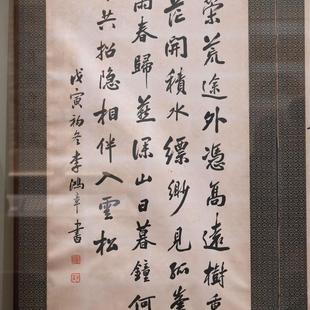 荒途外憑高遠樹重
茫開積水縹緲見孤峯
雨春歸燕深山日暮鐘何
共招隱相伴入雲松
戊寅初冬李鴻章書